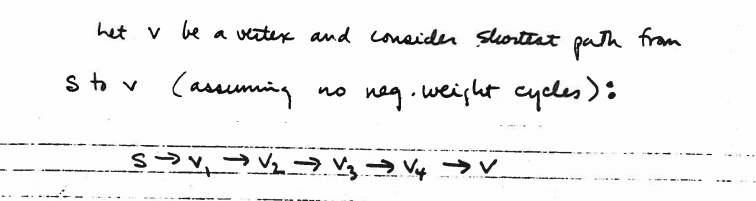 Let v be a vertex and consider shortest path from
s to v (assuming no neg. weight cycles):
s → v₁ → v₂ → v₃ → v₄ → v